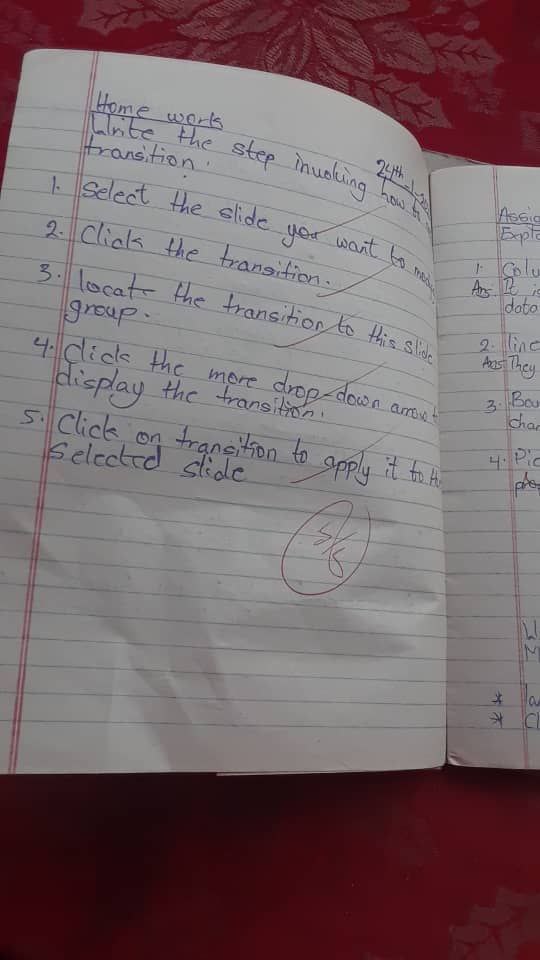 Home work
24th-1-20
Write the step involving how to
transition.
1. Select the slide you want to
2. Click the transition.
3. locate the transition to this slide
group.
4. Click the more drop-down arrow
display the transition.
5. Click on transition to apply it to
Selected slide
5/5
Assig
Expla
1. Colu
Ans. It is
data
2. line
Ans They
3. Ba
char
4. Pic
W
M
* la
* Cl